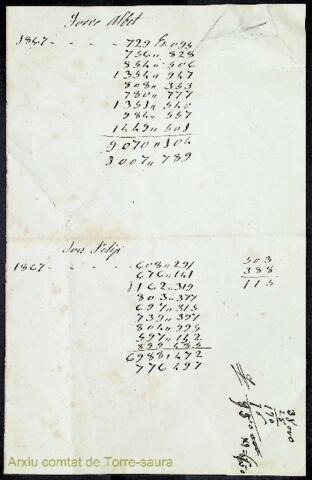 Torre Albet
1847 - - - - 729 " 095
756 " 828
854 " 506
1354 " 947
808 " 353
780 " 777
1351 " 540
984 " 557
1449 " 501
9070 " 104
3007 " 789
Son Felip
1867 - - - - 608 " 291
676 " 141
1162 " 319
803 " 377
697 " 315
739 " 397
804 " 995
597 " 142
829 " 485
6988 " 472
776 497
503
388
115
Arxiu comtat de Torre-saura